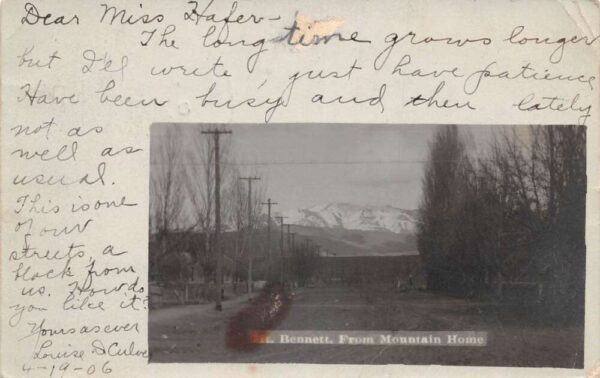 Dear Miss Hafer-
The long time grows longer
but I'll write, just have patience
Have been busy and then lately
not as
well as
usual.
This is one
of our
streets, a
block from
us. How do
you like it?
Yours as ever
Louise D Culver
4-19-06
t. Bennett. From Mountain Home